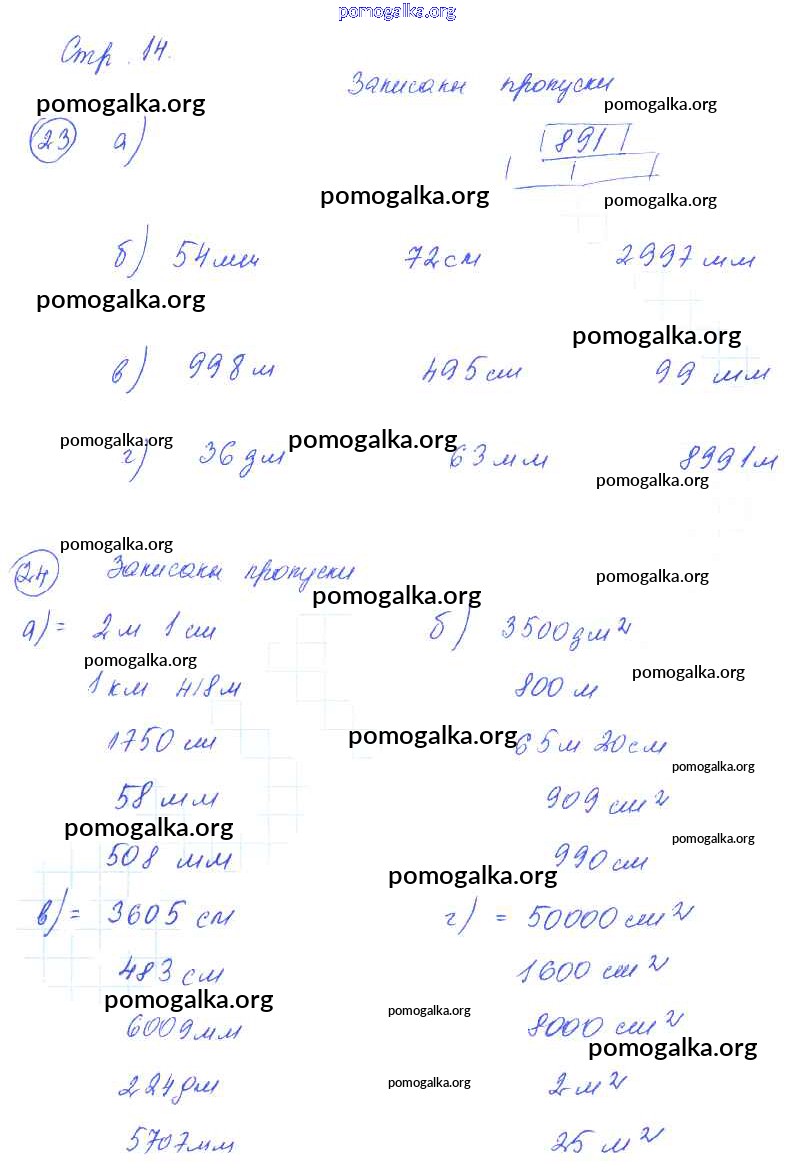 pomogalka.org
Стр. 14.
Записаны пропуски
pomogalka.org pomogalka.org
23 а) 891
pomogalka.org pomogalka.org
б) 54 мм 72 см 2997 мм
pomogalka.org
pomogalka.org
в) 998 м 495 см 99 мм
pomogalka.org pomogalka.org
г) 36 дм 63 мм 8991 м
pomogalka.org
pomogalka.org
24 Записаны пропуски pomogalka.org
pomogalka.org
а) = 2 м 1 см б) 3500 дм²
pomogalka.org pomogalka.org
1 км 418 м 800 м
1750 см pomogalka.org 65 м 20 см
pomogalka.org
58 мм 909 см²
pomogalka.org pomogalka.org
508 мм 990 см
pomogalka.org
в) = 3605 см г) = 50000 см²
483 см 1600 см²
pomogalka.org pomogalka.org
6009 мм 8000 см²
pomogalka.org
224 дм pomogalka.org 2 м²
5707 мм 25 м²